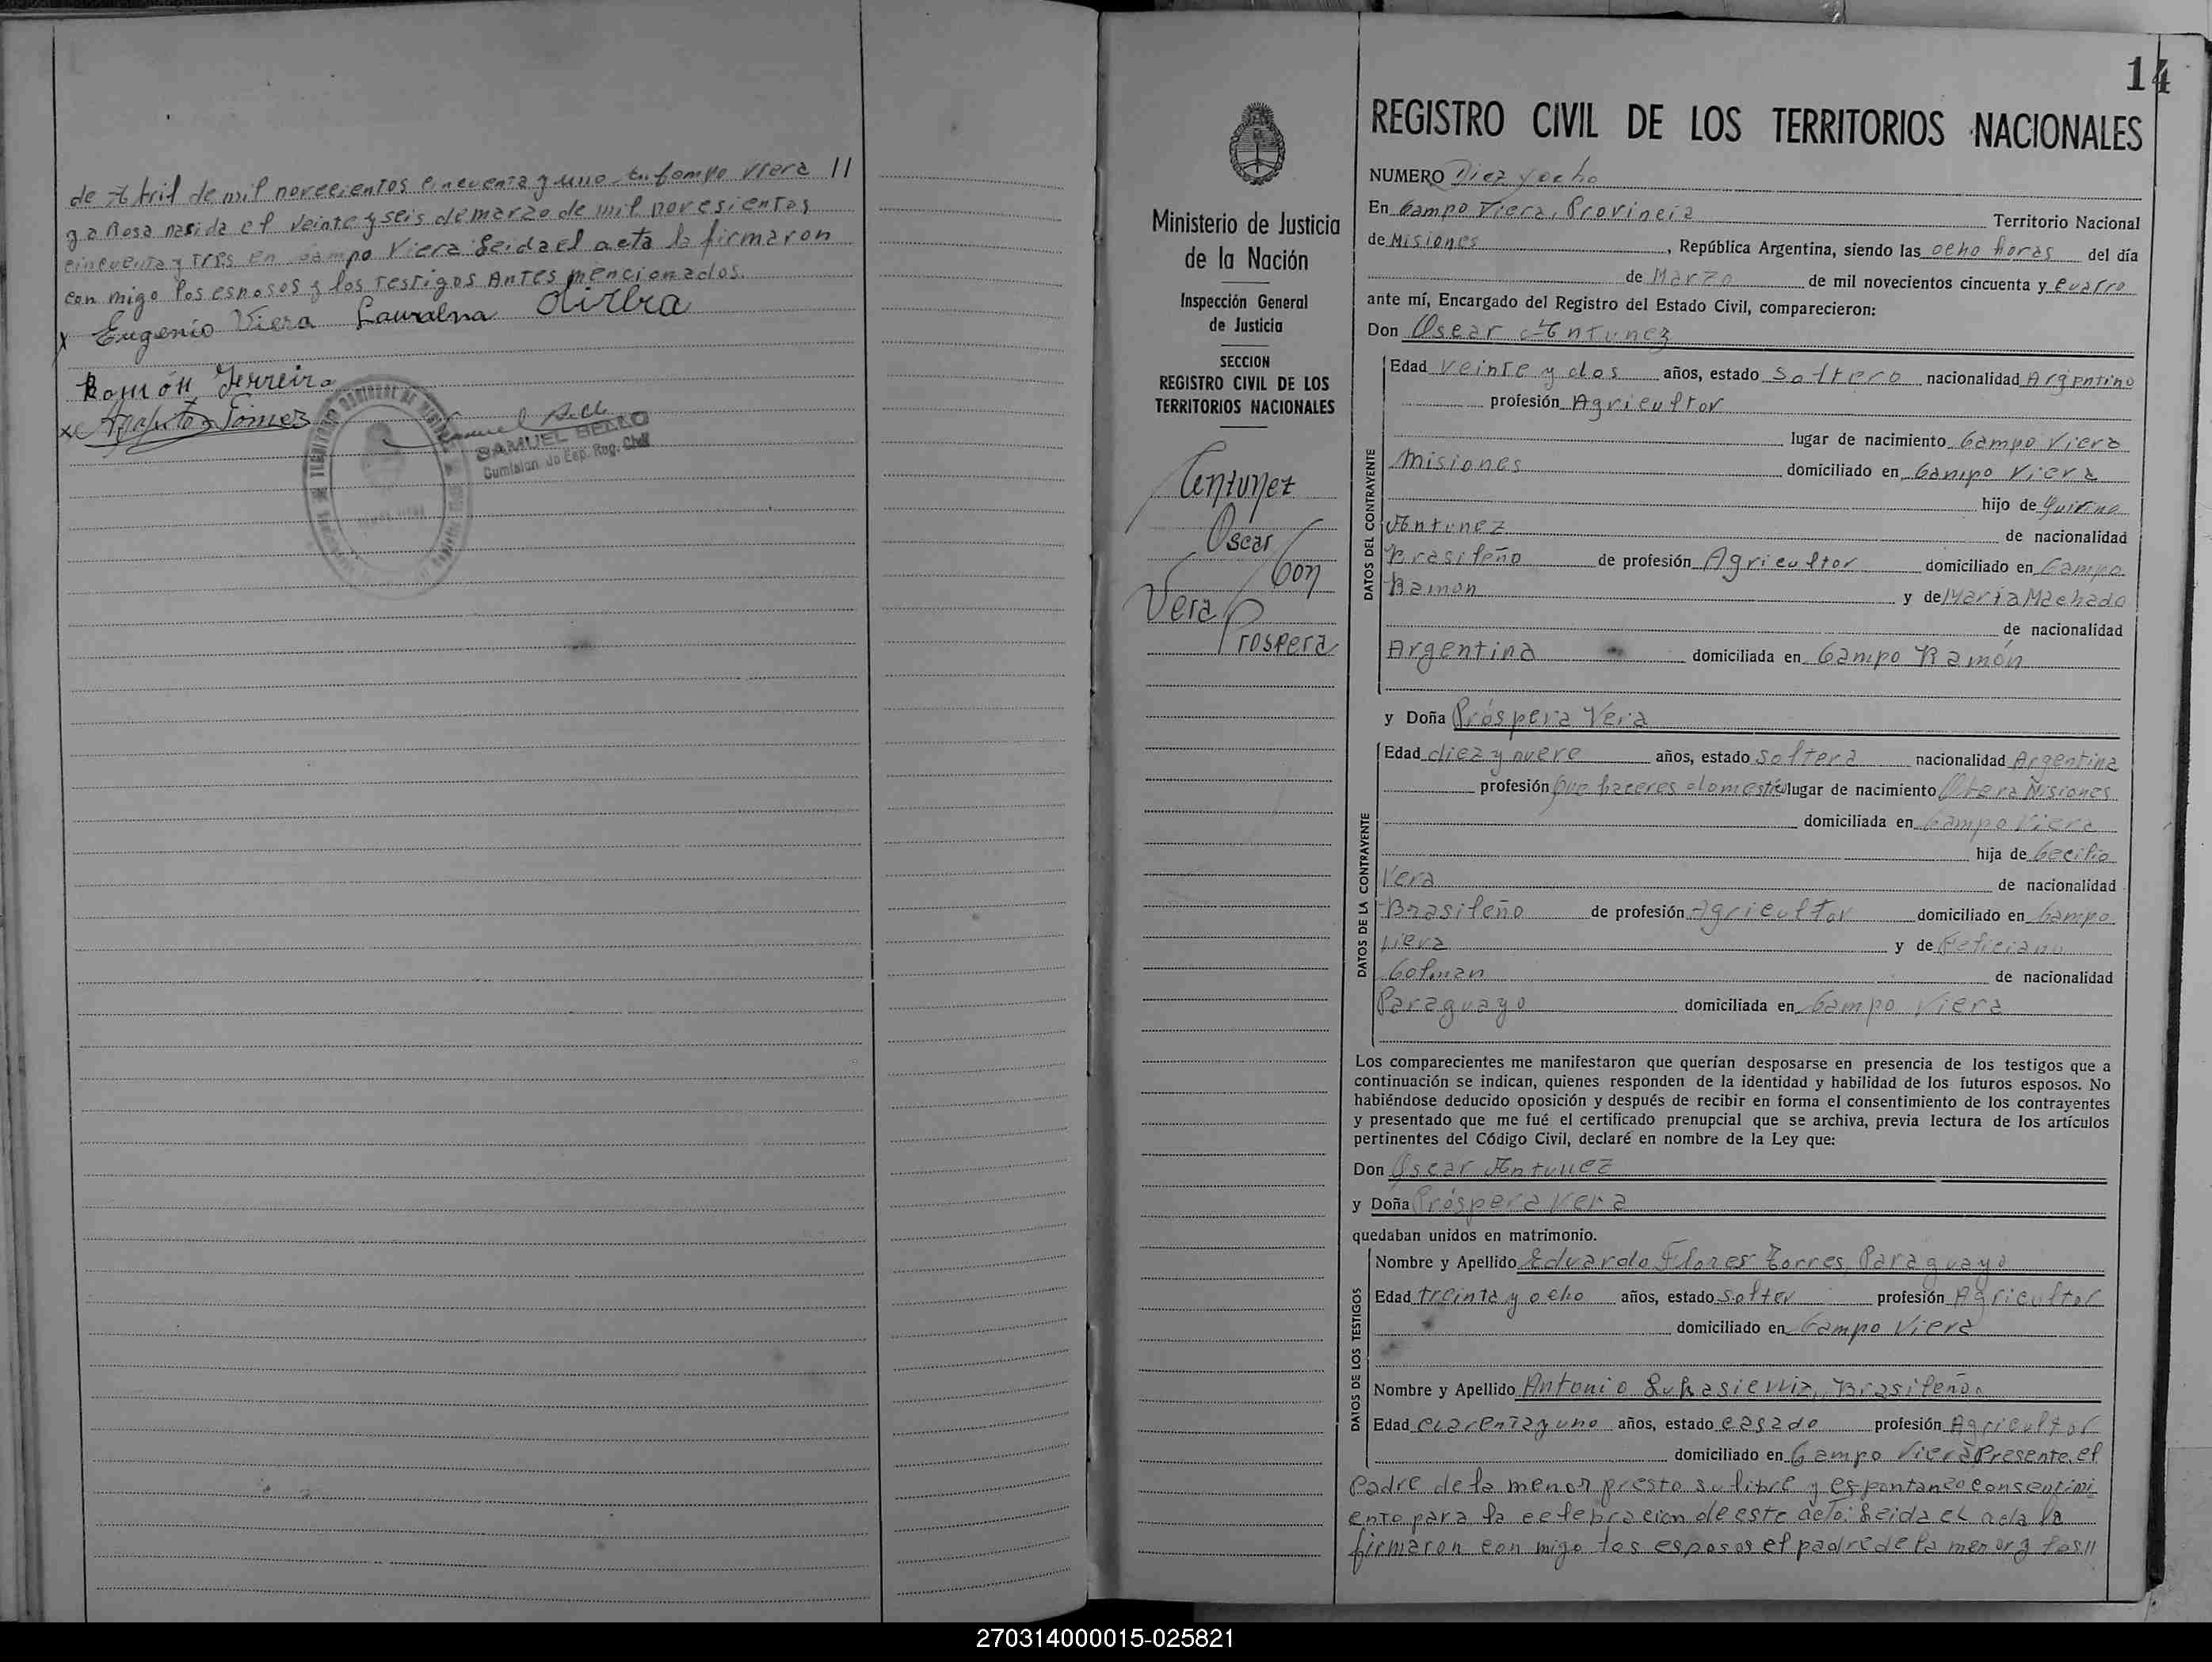 de Abril de mil novecientos cincuenta y uno en Campo Viera //
y a Rosa nasida el veinte y seis de marzo de mil novesientos
cincuenta y tres en campo Viera Leida el acta la firmaron
con migo los esposos y los testigos Antes mencionados.
x Eugenio Viera
Ramón Ferreira
SAMUEL BELLO
14
REGISTRO CIVIL DE LOS TERRITORIOS NACIONALES
Ministerio de Justicia
de la Nación
Inspección General
de Justicia
SECCION
REGISTRO CIVIL DE LOS
TERRITORIOS NACIONALES
Antunez
Oscar
Con
Vera
Prospera
NUMERO Diez y ocho
En Campo Viera, Provincia Territorio Nacional
de Misiones, República Argentina, siendo las ocho horas del día
de Marzo de mil novecientos cincuenta y cuatro
ante mí, Encargado del Registro del Estado Civil, comparecieron:
Don Oscar Antunez
DATOS DEL CONTRAYENTE
Edad veinte y dos años, estado soltero nacionalidad Argentino
profesión Agricultor
lugar de nacimiento Campo Viera
Misiones domiciliado en Campo Viera
hijo de Quirino
Antunez de nacionalidad
Brasileño de profesión Agricultor domiciliado en Campo
Ramon y de Maria Machado
de nacionalidad
Argentina domiciliada en Campo Ramón
y Doña Próspera Vera
DATOS DE LA CONTRAYENTE
Edad diez y nueve años, estado soltera nacionalidad Argentina
profesión Que haceres domestico lugar de nacimiento Obera Misiones
domiciliada en Campo Viera
hija de Cecilio
Vera de nacionalidad
Brasileño de profesión Agricultor domiciliado en Campo
Viera y de Feliciana
Colman de nacionalidad
Paraguayo domiciliada en Campo Viera
Los comparecientes me manifestaron que querían desposarse en presencia de los testigos que a
continuación se indican, quienes responden de la identidad y habilidad de los futuros esposos. No
habiéndose deducido oposición y después de recibir en forma el consentimiento de los contrayentes
y presentado que me fué el certificado prenupcial que se archiva, previa lectura de los artículos
pertinentes del Código Civil, declaré en nombre de la Ley que:
Don Oscar Antunez
y Doña Próspera Vera
quedaban unidos en matrimonio.
DATOS DE LOS TESTIGOS
Nombre y Apellido Eduardo Flores Torres, Paraguayo
Edad treinta y ocho años, estado solter profesión Agricultor
domiciliado en Campo Viera
Nombre y Apellido Antonio Brasileño.
Edad cuarenta y uno años, estado casado profesión Agricultor
domiciliado en Campo Viera Presente, el
Padre de la menor presto su libre y espontaneo consentimi
ento para la celebracion de este acto: Leida el acta la
firmaron con migo los esposos el padre de la menor y los //
270314000015-025821